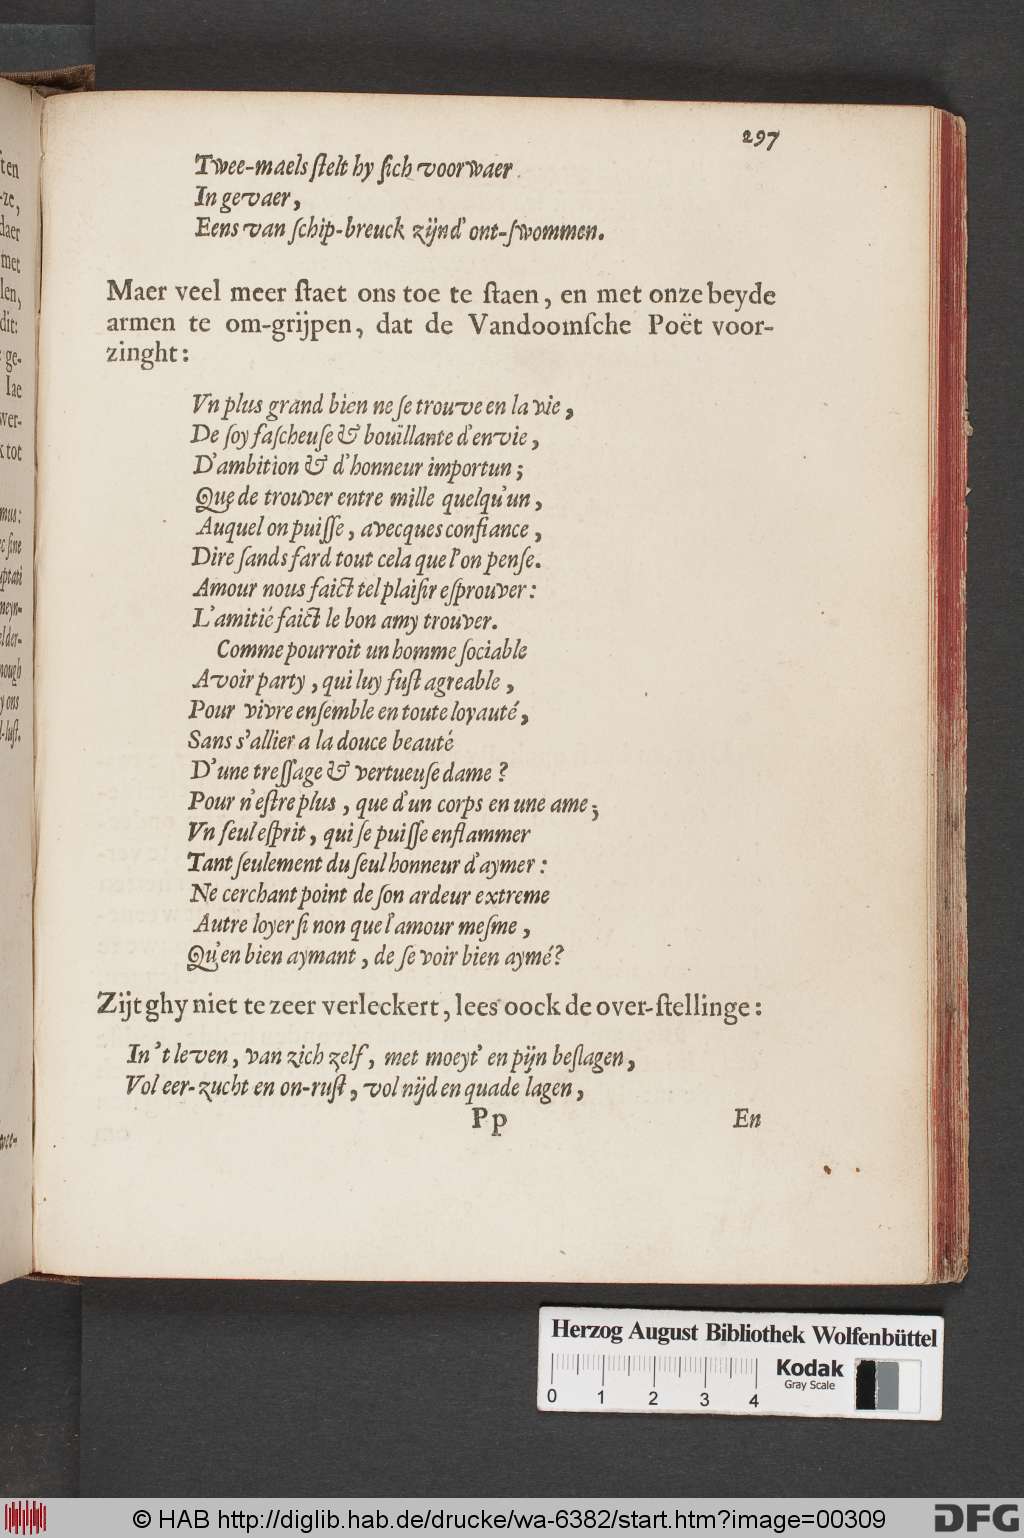 297
Twee-maels ſtelt hy ſich voorwaer
In gevaer,
Eens van ſchip-breuck zijnd' ont-ſwommen.
Maer veel meer ſtaet ons toe te ſtaen, en met onze beyde
armen te om-grijpen, dat de Vandoomſche Poët voor-
zinght:
Vn plus grand bien ne ſe trouve en la vie,
De ſoy faſcheuſe & bouïllante d'envie,
D'ambition & d'honneur importun;
Que de trouver entre mille quelqu'un,
Auquel on puiſſe, avecques confiance,
Dire ſands fard tout cela que l'on penſe.
Amour nous faict tel plaiſir eſprouver:
L'amitié faict le bon amy trouver.
Comme pourroit un homme ſociable
Avoir party, qui luy fuſt agreable,
Pour vivre enſemble en toute loyauté,
Sans s'allier a la douce beauté
D'une treſſage & vertueuſe dame?
Pour n'eſtre plus, que d'un corps en une ame;
Vn ſeul eſprit, qui ſe puiſſe enflammer
Tant ſeulement du ſeul honneur d'aymer:
Ne cerchant point de ſon ardeur extreme
Autre loyer ſi non que l'amour meſme,
Qu'en bien aymant, de ſe voir bien aymé?
Zijt ghy niet te zeer verleckert, lees oock de over-ſtellinge:
In 't leven, van zich zelf, met moeyt' en pijn beſlagen,
Vol eer-zucht en on-ruſt, vol nijd en quade lagen,
Pp En
ſten
-ze,
daer
met
len,
dit:
ge-
Iae
wer-
k tot
mus:
ſine
uptati
meyn-
elder-
nough
y ons
d-luſt.
wee-
Herzog August Bibliothek Wolfenbüttel
Kodak
Gray Scale
0 1 2 3 4
© HAB http://diglib.hab.de/drucke/wa-6382/start.htm?image=00309
DFG